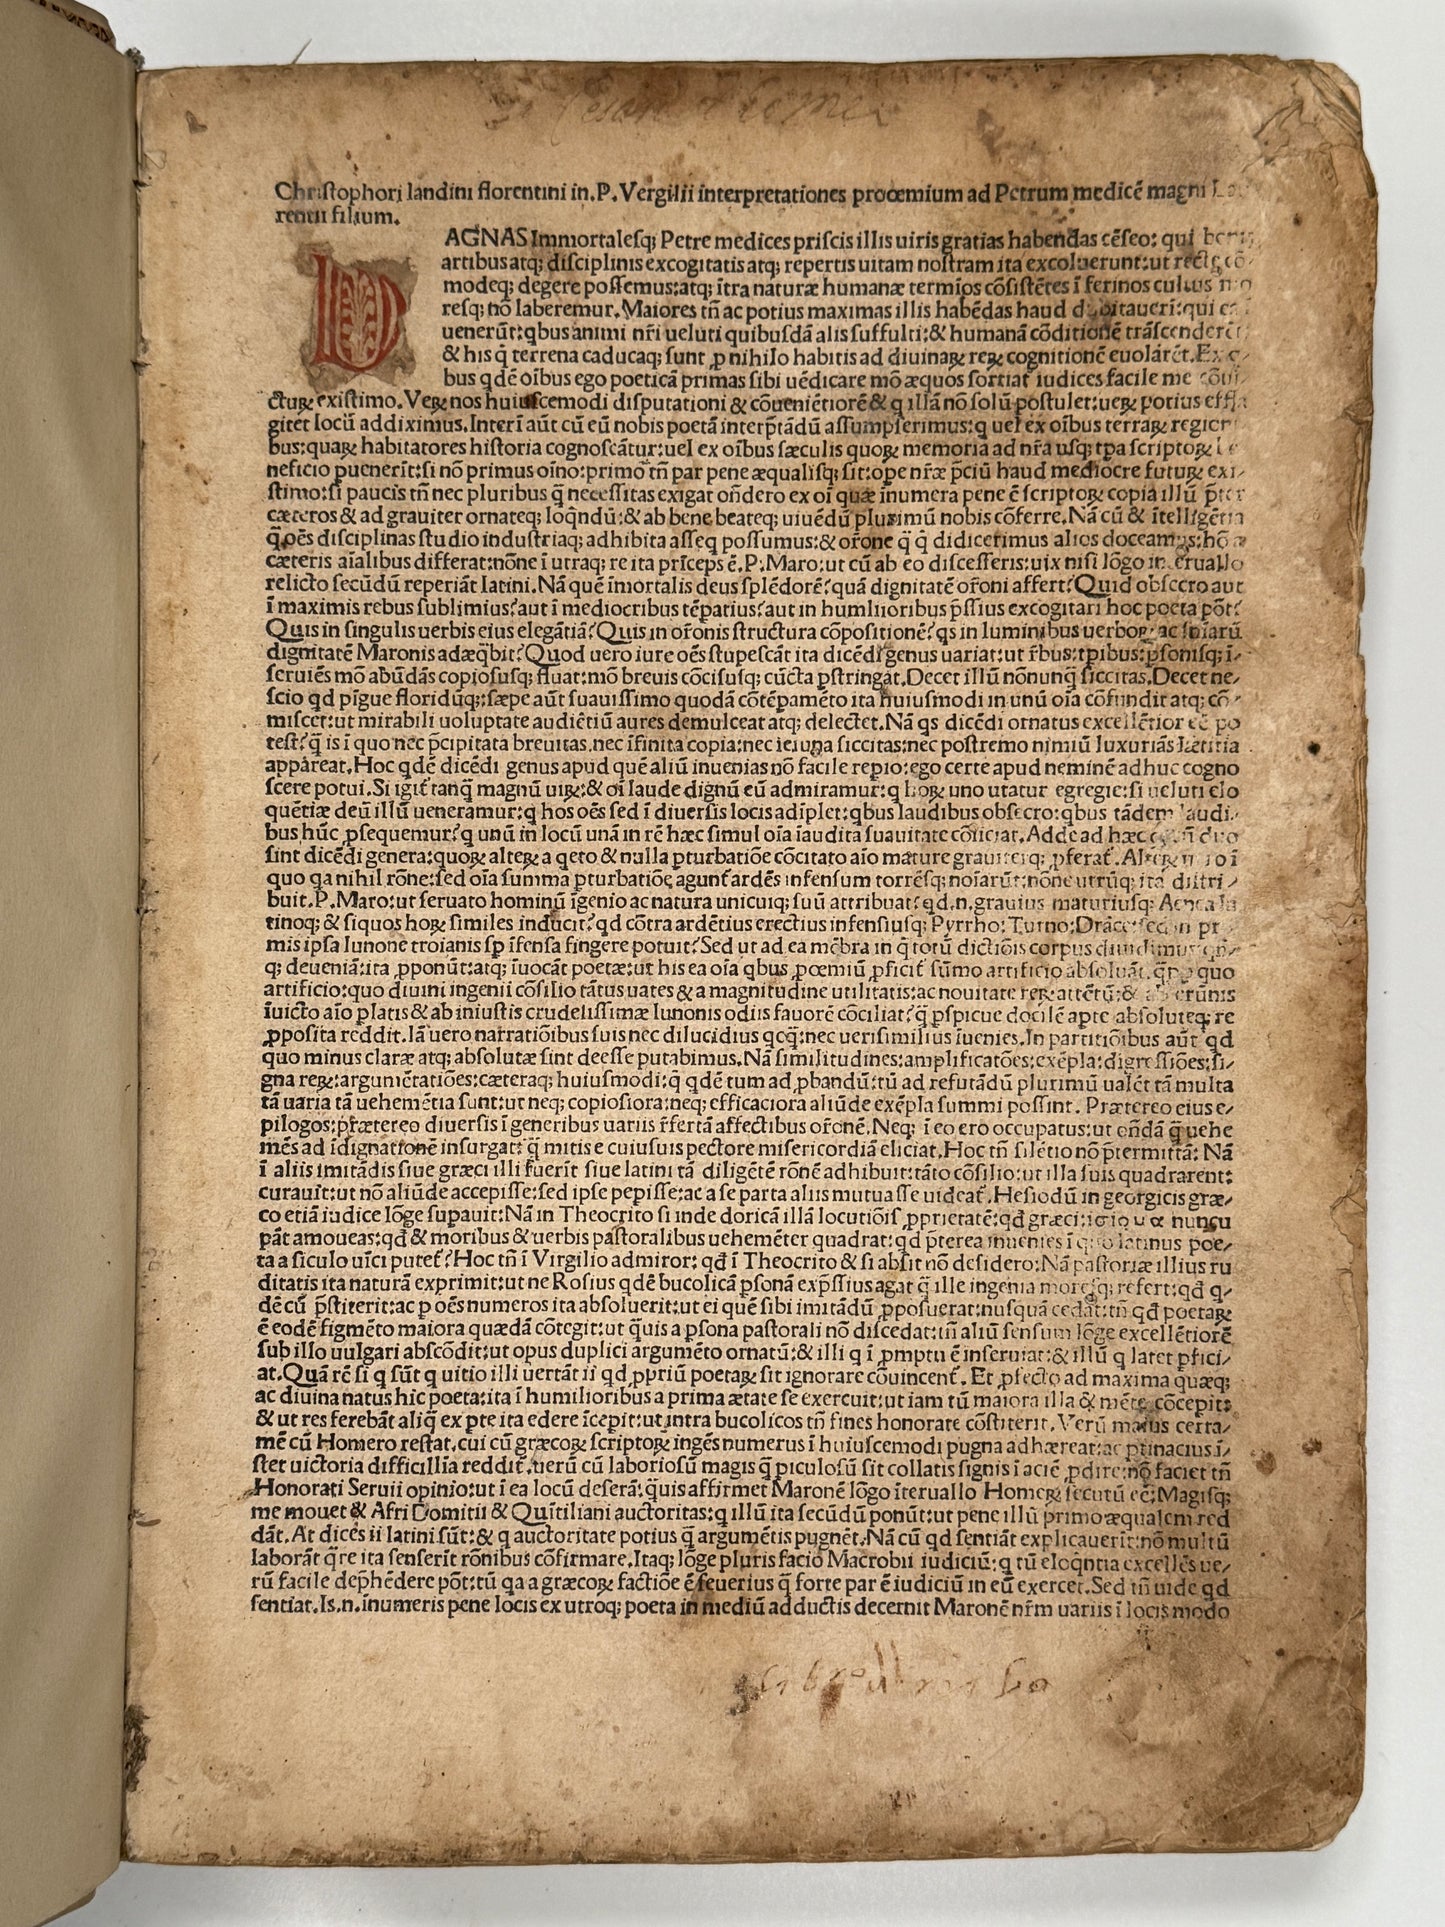 Christophori landini florentini in.P.Vergilii interpretationes prooemium ad Petrum medicē magni
rentii filium.
AGNAS Immortalesq; Petre medices priscis illis uiris gratias habendas cēseo: qui
artibus atq; disciplinis excogitatis atq; repertis uitam nostram ita excoluerunt:ut
modeq; degere possemus:atq; ītra naturæ humanæ termīos cōsistētes ī ferinos cultus
resq; nō laberemur.Maiores tn̄ ac potius maximas illis habēdas haud qui
uenerūt:qbus animi nr̄i ueluti quibusdā alis suffulti:& humanā cōditionē trāscenderēt
& his q̄ terrena caducaq; sunt ꝓ nihilo habitis ad diuinaꝝ reꝝ cognitionē euolarēt.Ex
bus qdē oībus ego poeticā primas sibi uēdicare mō æquos sortiat̄ iudices facile me
ctuꝝ existimo.Veꝝ nos huiuscemodi disputationi & cōueniētiorē & q illā nō solū postulet:ueꝝ potius
gitet locū addiximus.Interī aūt cū eū nobis poetā interp̄tādū assumpserimus:q uel ex oībus terraꝝ
bus:quaꝝ habitatores historia cognoscāt̄ur:uel ex oībus sæculis quoꝝ memoria ad nr̄a usq; tꝑa scriptoꝝ
neficio ꝑuenerīt:si nō primus oīno:primo tn̄ par pene æqualisq; sit:ope nr̄æ p̄ciū haud mediocre futuꝝ exi⸗
stimo:si paucis tn̄ nec pluribus q̄ necessitas exigat on̄dero ex oī quæ īnumera pene ē scriptoꝝ copia illū
cæteros & ad grauiter ornateq; loq̄ndū:& ab bene beateq; uiuēdū plurimū nobis cōferre.Nā cū & ītelligētia
q̄ oēs disciplinas studio industriaq; adhibita asseq possumus:& or̄one q̄ q̄ didicerimus alios doceamus:
cæteris aīalibus differat:nōne ī utraq; re ita prīceps ē.P.Maro:ut cū ab eo discesseris:uix nisi lōgo
relicto secūdū reperiāt latini.Nā quē īmortalis deus splēdorē?quā dignitatē or̄oni affert?Quid obsecro aut
ī maximis rebus sublimius?aut ī mediocribus tēpatius?aut in humlioribus p̄ssius excogitari hoc poeta pōt?
Quis in singulis uerbis eius elegātiā?Quis in or̄onis structura cōpositionē?qs in luminibus uerboꝝ ac sn̄iarū
dignitatē Maronis adæq̄bit?Quod uero iure oēs stupescāt ita dicēdi genus uariat:ut r̄bus:tꝑibus:ꝑsonisq; ī⸗
seruiēs mō abūdās copiosusq; fluat:mō breuis cōcisusq; cūcta ꝑstringat.Decet illū nōnunq̄ siccitas.Decet ne⸗
scio qd pīgue floridūq;:sæpe aūt suauissimo quodā cōtēpamēto ita huiusmodi in unū oīa cōfundit atq; cō⸗
miscet:ut mirabili uoluptate audiētiū aures demulceat atq; delectet.Nā qs dicēdi ornatus excellētior eē po
test?q̄ is ī quo nec p̄cipitata breuitas.nec īfinita copia:nec ieiuna siccitas:nec postremo nimiū luxuriās lætitia
appareat.Hoc qdē dicēdi genus apud quē aliū inuenias nō facile repio:ego certe apud neminē adhuc cogno
scere potui.Si igit̄ tanq̄ magnū uiꝝ:& oī laude dignū eū admiramur:q hoꝝ uno utatur egregie:si ueluti elo
quētiæ deū illū ueneramur:q hos oēs sed ī diuersis locis adīplet:qbus laudibus obsecro:qbus tādem laudi⸗
bus hūc ꝓsequemur?q unū in locū unā in rē hæc simul oīa īaudita suauitate cōiiciat.Adde ad hæc
sint dicēdi genera:quoꝝ alteꝝ a qeto & nulla ꝑturbatiōe cōcitato aīo mature grauiterq; ꝓferat̄.
quo qa nihil rōne:sed oīa summa ꝑturbatiōe agunt̄ ardēs infensum torrēsq; noīarūt:nōne utrūq; ita distri⸗
buit.P.Maro:ut seruato hominū īgenio ac natura unicuiq; suū attribuat?qd.n.grauius maturiusq; Aenea
tinoq; & siquos hoꝝ similes inducit?qd cōtra ardētius erectius infensiusq; Pyrrho:Turno:
mis ipsa Iunone troianis sꝑ īfensa fingere potuit?Sed ut ad ea mēbra in q̄ totū dictiōis corpus diuidimus
q; deueniā:ita ꝓponūt:atq; īuocāt poetæ:ut his ea oīa qbus ꝓœmiū ꝑficit̄ sūmo artificio absoluāt. quo
artificio:quo diuini ingenii cōsilio tātus uates & a magnitudine utilitatis:ac nouitate reꝝ attētū:&
īuicto aīo ꝑlatis & ab iniustis crudelissimæ Iunonis odiis fauorē cōciliat?q̄ ꝑspicue docilē apte absoluteq; re
ꝓposita reddit.Iā uero narratiōibus suis nec dilucidius qcq̄:nec uerisimilius īuenies.In partitiōibus aūt qd
quo minus claræ atq; absolutæ sint deesse putabimus.Nā similitudines:amplificatōes:exēpla:digressiōes:si⸗
gna reꝝ:argumētatiōes:cæteraq; huiusmodi:q̄ qdē tum ad ꝓbandū:tū ad refutādū plurimū ualēt tā multa
tā uaria tā uehemētia sunt:ut neq; copiosiora:neq; efficaciora aliūde exēpla summi possint. Prætereo eius e⸗
pilogos:prætereo diuersis ī generibus uariis r̄fertā affectibus or̄onē.Neq; ī eo ero occupatus:ut on̄dā q̄ uehe
mēs ad īdignationē insurgat:q̄ mitis e cuiusuis pectore misericordiā eliciat.Hoc tn̄ silētio nō p̄termittā: Nā
ī aliis imitādis siue græci illi fuerīt siue latini tā diligētē rōnē adhibuit:tāto cōsilio:ut illa suis quadrarent:
curauit:ut nō aliūde accepisse:sed ipse pepisse:ac a se parta aliis mutuasse uideat̄.Hesiodū in georgicis græ⸗
co etiā iudice lōge supauit:Nā in Theocrito si inde doricā illā locutiōis ꝓprietatē:qd græci nuncu
pāt amoueas:qd & moribus & uerbis pastoralibus uehemēter quadrat:qd p̄terea inuenies ī quo latinus poe⸗
ta a siculo uīci putet̄?Hoc tn̄ ī Virgilio admiror: qd ī Theocrito & si absit nō desidero:Nā pastoriæ illius ru
ditatis ita naturā exprimit:ut ne Rosius qdē bucolicā ꝑsonā exp̄ssius agat q̄ ille ingenia moresq; refert:qd q⸗
dē cū p̄stiterit:ac ꝑ oēs numeros ita absoluerit:ut ei quē sibi imitādū ꝓposuerat:nusquā cedat:tn̄ qd poetaꝝ
ē eodē figmēto maiora quædā cōtegit:ut q̄uis a ꝑsona pastorali nō discedat:tn̄ aliū sensum lōge excellētiorē
sub illo uulgari abscōdit:ut opus duplici argumēto ornatū:& illi q ī ꝓmptu ē inseruiat:& illū q latet ꝑfici⸗
at.Quā rē si q sūt q uitio illi uertāt ii qd ꝓpriū poetaꝝ sit ignorare cōuincent̄. Et ꝓfecto ad maxima quæq;
ac diuina natus hic poeta:ita ī humilioribus a prima ætate se exercuit:ut iam tū maiora illa q̄ mēte cōcepit:
& ut res ferebāt aliq̄ ex ꝑte ita edere īcepit:ut intra bucolicos tn̄ fines honorate cōstiterit.Verū maius certa⸗
mē cū Homero restat.cui cū græcoꝝ scriptoꝝ ingēs numerus ī huiuscemodi pugna adhæreat:ac ꝑtinacius ī⸗
stet uictoria difficillīa reddit̄.uerū cū laboriosū magis q̄ ꝑiculosū sit collatis signis ī aciē ꝓdire:nō faciet tn̄
Honorati Seruii opinio:ut ī ea locū deserā:q̄uis affirmet Maronē lōgo īteruallo Homeꝝ secutū eē:Magisq;
me mouet & Afri Domitii & Quītiliani auctoritas:q illū ita secūdū ponūt:ut pene illū primo æqualem red
dāt.At dicēs ii latini sūt:& q auctoritate potius q̄ argumētis pugnēt.Nā cū qd sentiāt explicauerīt:nō multū
laborāt q̄re ita senserīt rōnibus cōfirmare.Itaq; lōge pluris facio Macrobii iudiciū:q tū eloq̄ntia excellēs ue⸗
rū facile dep̄hēdere pōt:tū qa a græcoꝝ factiōe ē seuerius q̄ forte par ē iudiciū in eū exercet.Sed tn̄ uide qd
sentiat.Is.n.īnumeris pene locis ex utroq; poeta in mediū adductis decernit Maronē nr̄m uariis ī locis modo